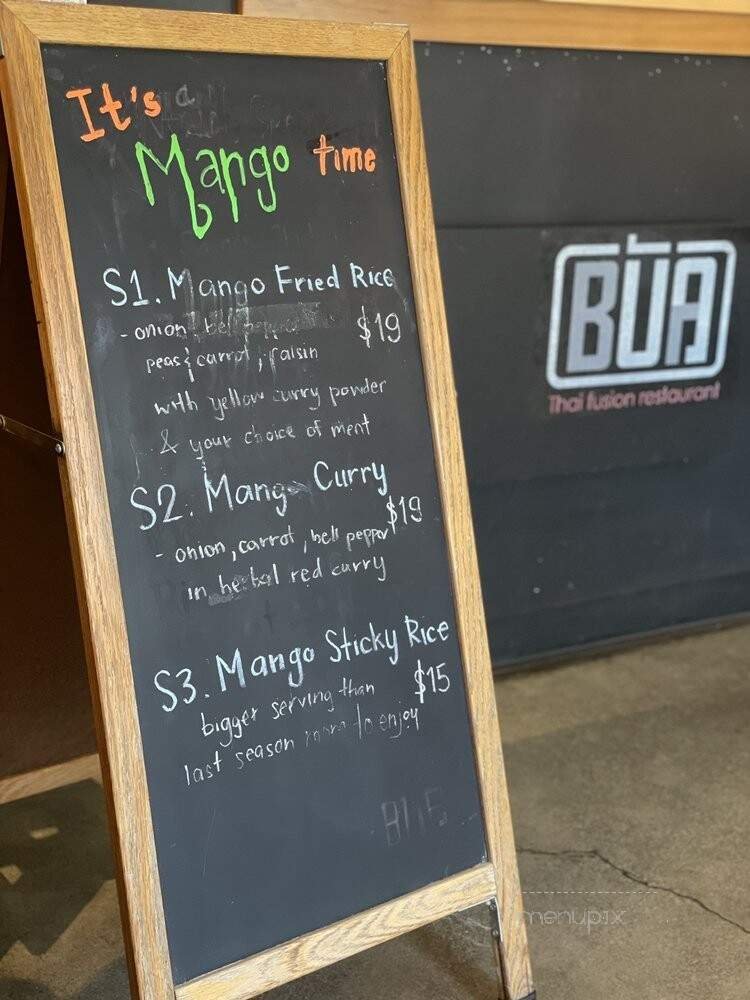 It's a
Mango time
S1. Mango Fried Rice
- onion, bell pepper $19
peas & carrot, raisin
with yellow curry powder
& your choice of ment
S2. Mango Curry
$19
- onion, carrot, bell pepper
in herbal red curry
S3. Mango Sticky Rice
$15
bigger serving than
last season more to enjoy
BUA
Thai fusion restaurant
menupix